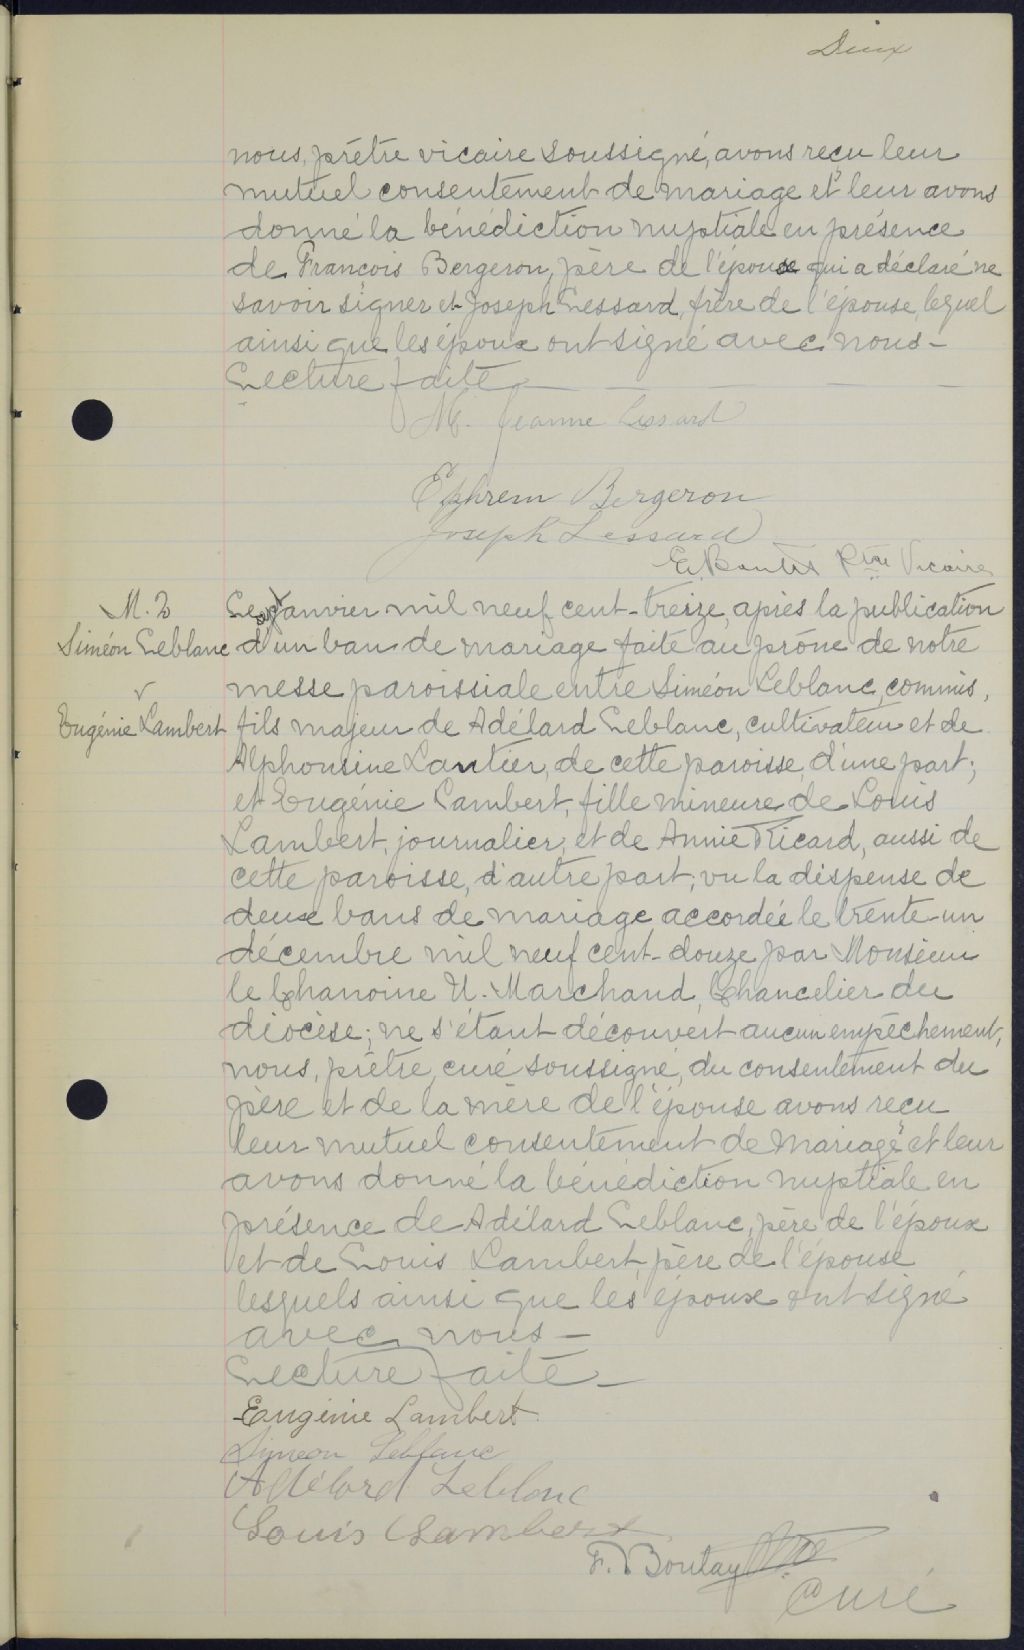 Deux
nous, prêtre vicaire soussigné, avons reçu leur
mutuel consentement de mariage et leur avons
donné la bénédiction nuptiale en présence
de François Bergeron, père de l'époux qui a déclaré ne
savoir signer et Joseph Lessard, frère de l'épouse, lequel
ainsi que les époux ont signé avec nous -
Lecture faite
M. Jeanne Lessard
Ephrem Bergeron
Joseph Lessard
Ptre Vicaire
M. 2
Siméon Leblanc
v
Eugénie Lambert
Le janvier mil neuf cent-treize, après la publication
d'un ban de mariage faite au prône de notre
messe paroissiale entre Siméon Leblanc, commis,
fils majeur de Adélard Leblanc, cultivateur et de
Alphonsine Lantier, de cette paroisse, d'une part;
et Eugénie Lambert, fille mineure de Louis
Lambert, journalier, et de Annie Ricard, aussi de
cette paroisse, d'autre part; vu la dispense de
deux bans de mariage accordée le trente-un
décembre mil neuf cent-douze par Monsieur
le Chanoine U. Marchand, Chancelier du
diocèse; ne s'étant découvert aucun empêchement,
nous, prêtre, curé soussigné, du consentement du
père et de la mère de l'épouse avons reçu
leur mutuel consentement de mariage et leur
avons donné la bénédiction nuptiale en
présence de Adélard Leblanc, père de l'époux
et de Louis Lambert, père de l'épouse
lesquels ainsi que les époux ont signé
avec nous -
Lecture faite -
Eugénie Lambert
Simeon Leblanc
Adélard Leblanc
Louis Lambert
F. Boutay Ptre
Curé